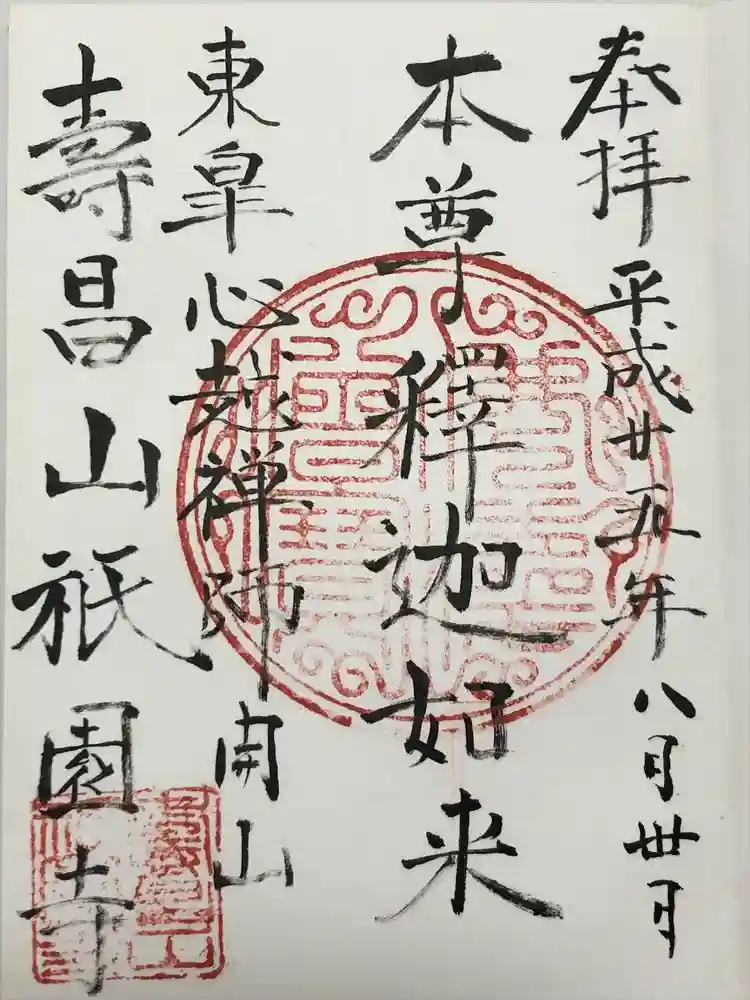 奉拝 平成廿五年 八月卅日
本尊釋迦如来
東皐心越禅師 開山
壽昌山祇園寺